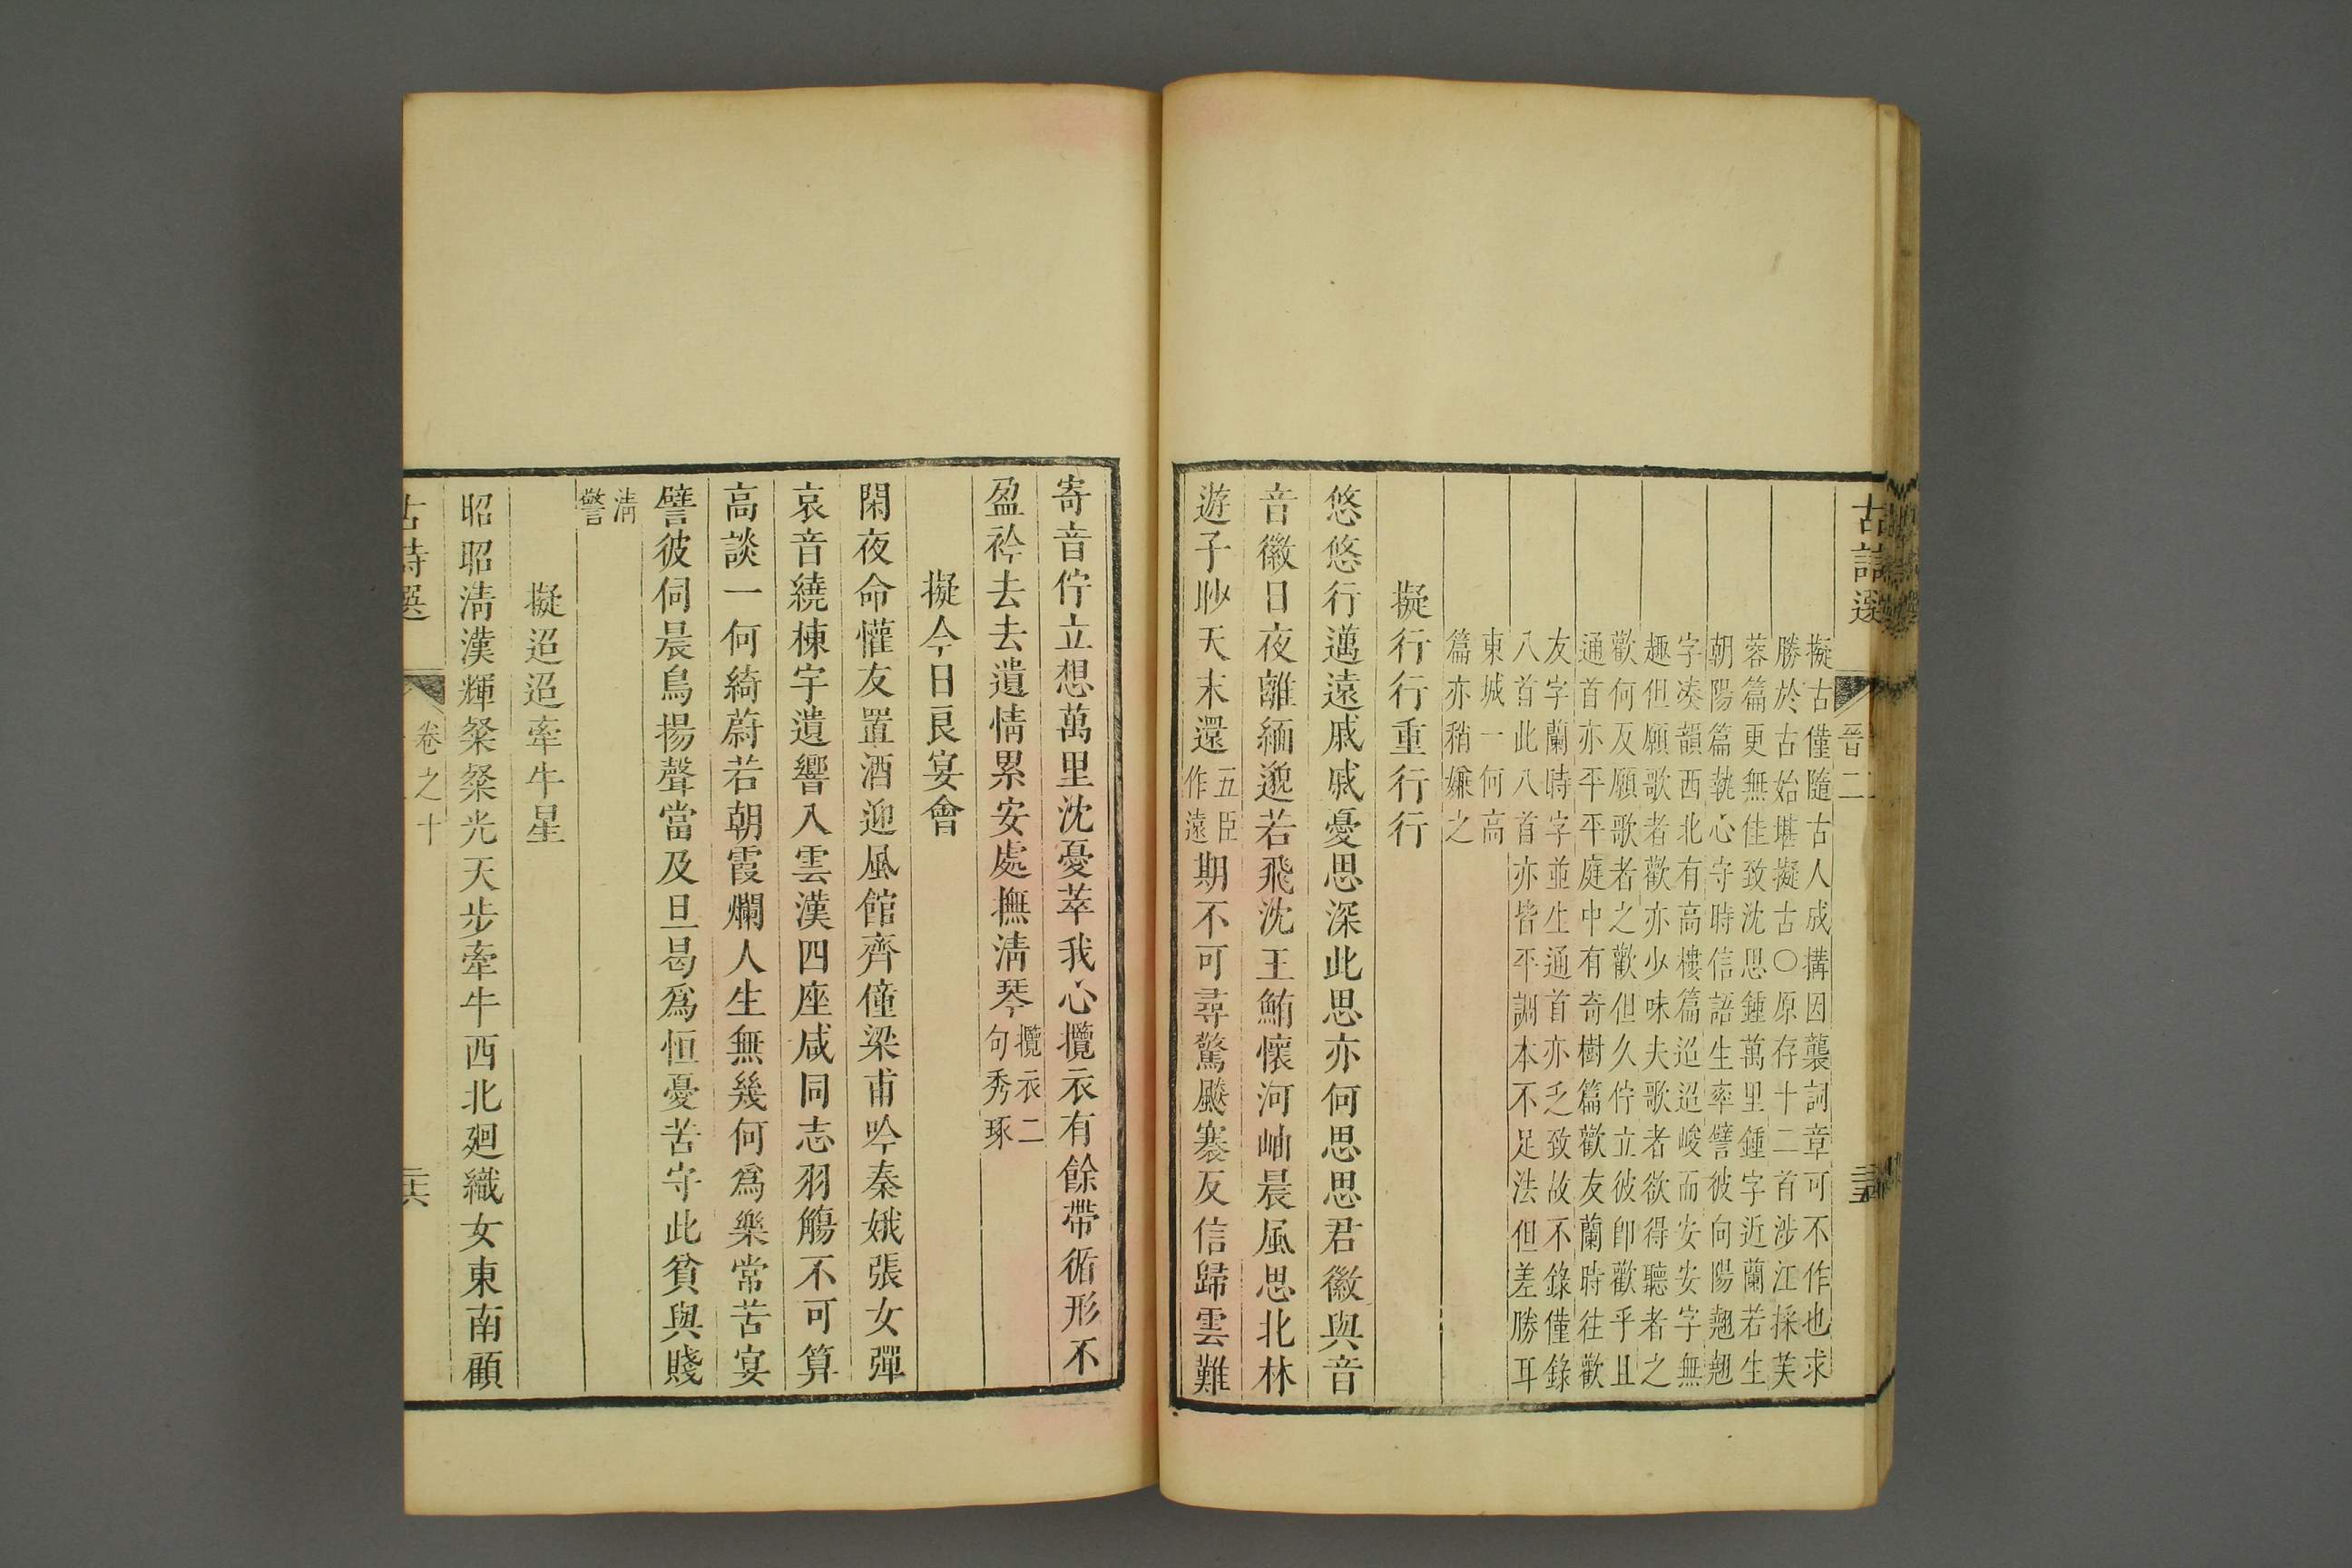 古詩選
晉二
擬古僅隨古人成搆因襲詞章可不作也求
勝於古始堪擬古○原存十二首涉江採芙
蓉篇更無佳致沈思鍾萬里鍾字近蘭若生
朝陽篇執心守時信語生率譬彼向陽翹翹
字凑韻西北有高樓篇迢迢峻而安安字無
趣但願歌者歡亦少味夫歌者欲得聽者之
歡何及願歌者之歡但久佇立彼卽歡乎且
通首亦平平庭中有奇樹篇歡友蘭時往歡
友字蘭時字並生通首亦乏致故不錄僅錄
八首此八首亦皆平調本不足法但差勝耳
東城一何高
篇亦稍嫌之
擬行行重行行
悠悠行邁遠戚戚憂思深此思亦何思思君徽與音
音徽日夜離緬邈若飛沈王鮪懷河岫晨風思北林
遊子眇天末還五臣作遠期不可尋驚飈褰反信歸雲難
寄音佇立想萬里沈憂萃我心攬衣有餘帶循形不
盈衿去去遺情累安處撫淸琴攬衣二句秀琢
擬今日良宴會
閑夜命懽友置酒迎風館齊僮梁甫吟秦娥張女彈
哀音繞棟宇遺響入雲漢四座咸同志羽觴不可算
高談一何綺蔚若朝霞爛人生無幾何爲樂常苦宴
譬彼伺晨鳥揚聲當及旦曷爲恒憂苦守此貧與賤
淸警
擬迢迢牽牛星
昭昭淸漢輝粲粲光天步牽牛西北廻織女東南顧
古詩選
卷之十